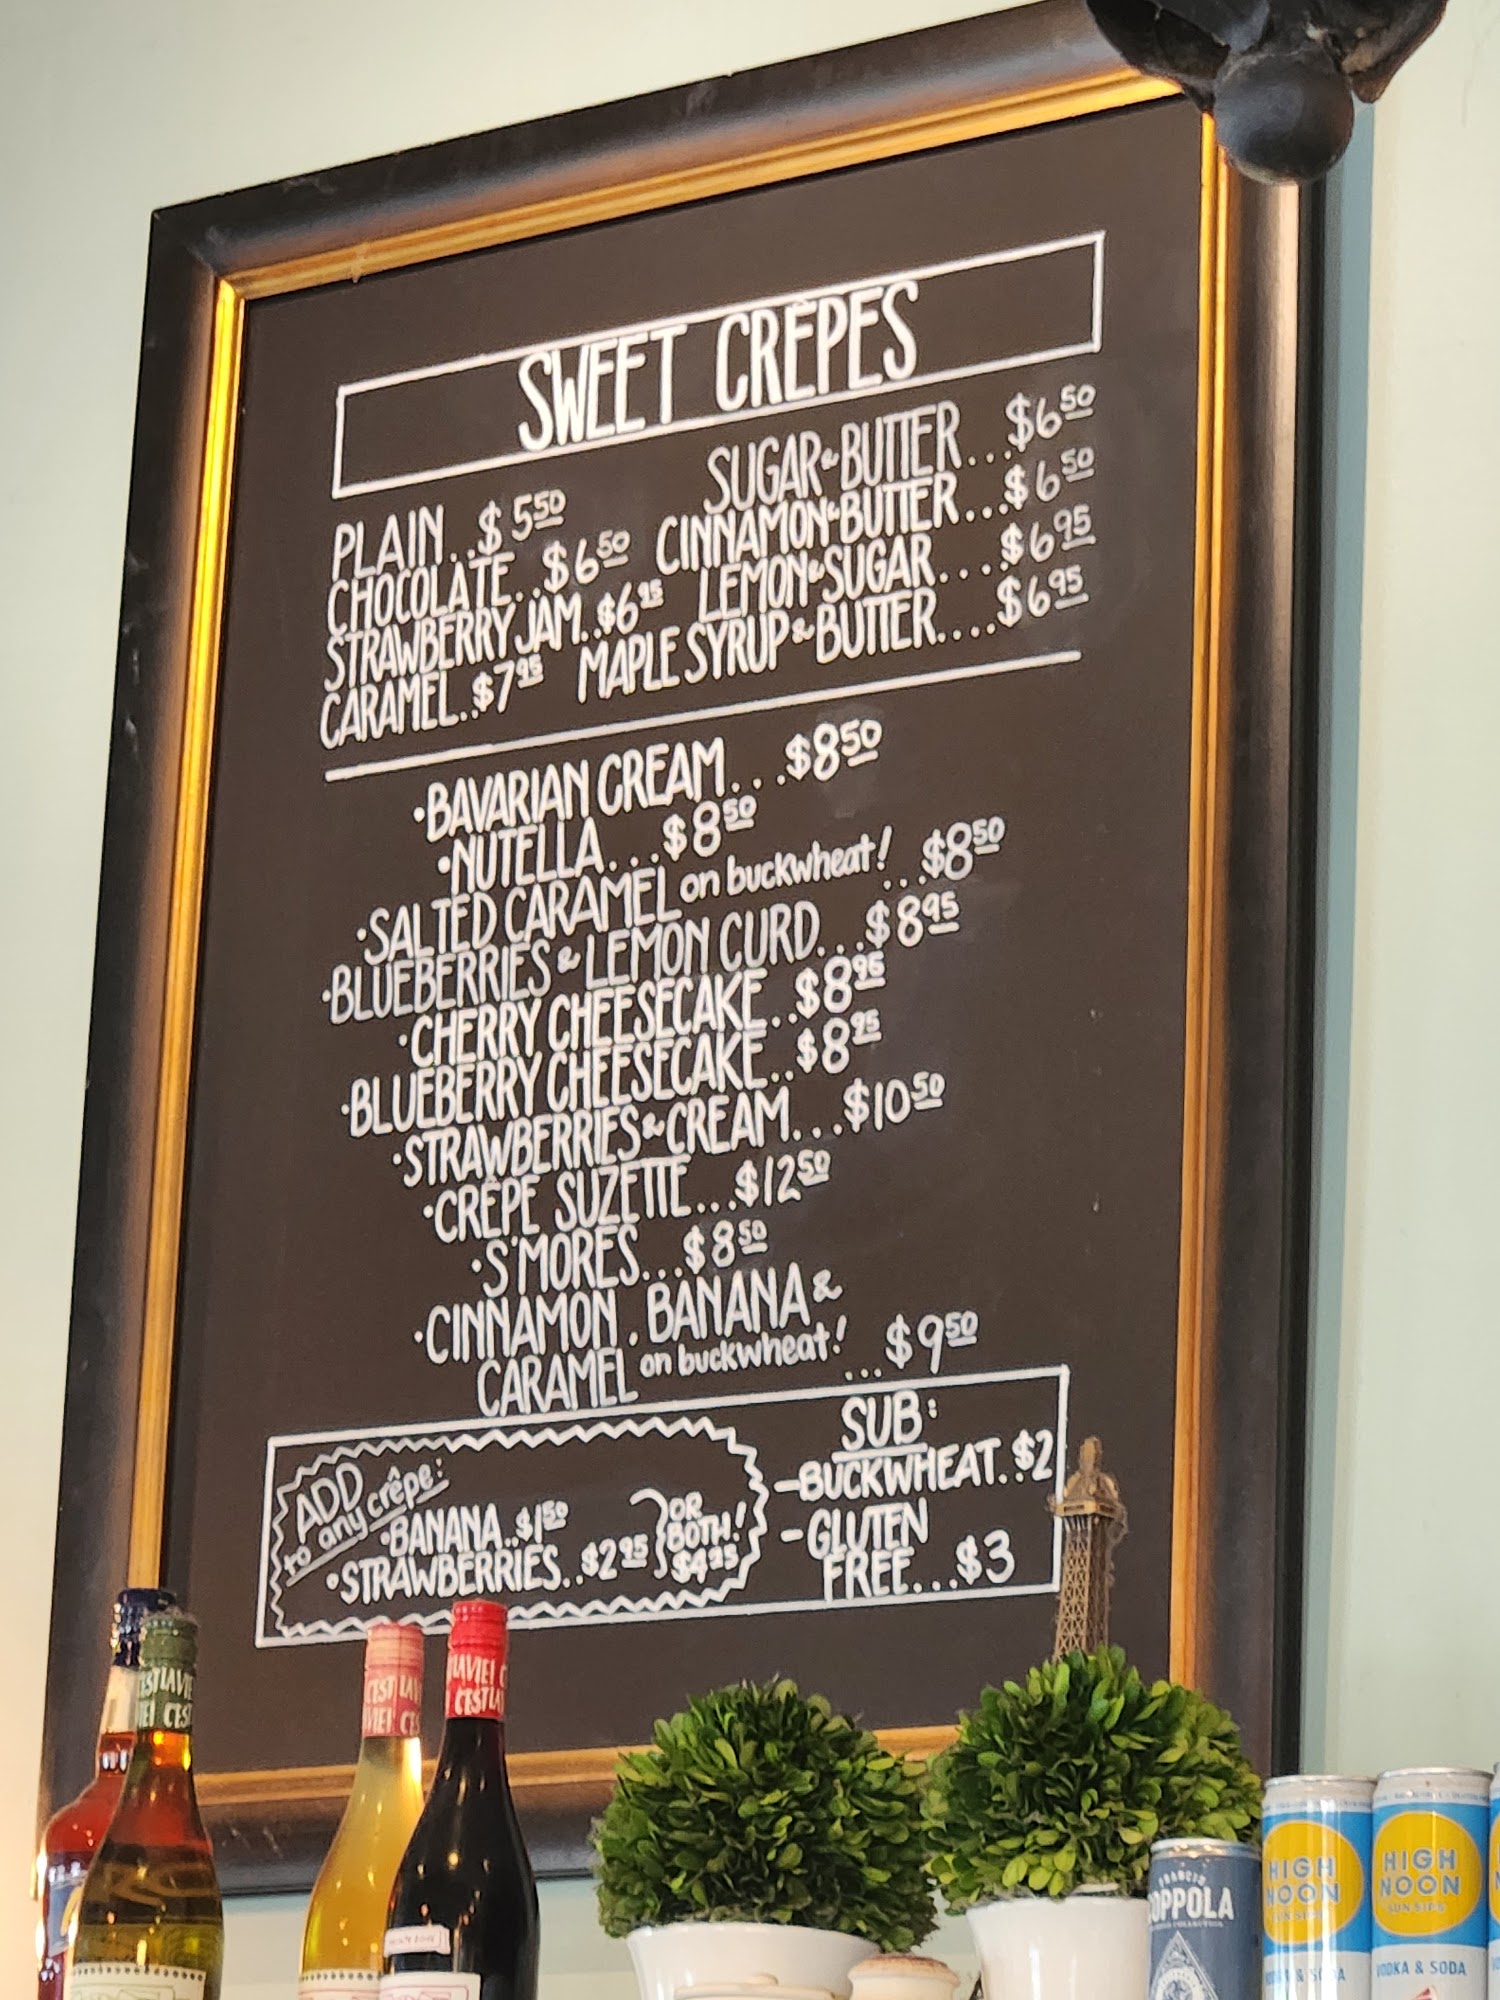 SWEET CRÊPES
PLAIN..$5⁵⁰
CHOCOLATE...$6⁵⁰
STRAWBERRY JAM..$6⁹⁵
CARAMEL..$7⁹⁵
SUGAR & BUTTER...$6⁵⁰
CINNAMON & BUTTER...$6⁵⁰
LEMON & SUGAR....$6⁹⁵
MAPLE SYRUP & BUTTER....$6⁹⁵
•BAVARIAN CREAM...$8⁵⁰
•NUTELLA...$8⁵⁰
•SALTED CARAMEL on buckwheat! ...$8⁵⁰
•BLUEBERRIES & LEMON CURD...$8⁹⁵
•CHERRY CHEESECAKE..$8⁹⁵
•BLUEBERRY CHEESECAKE..$8⁹⁵
•STRAWBERRIES & CREAM...$10⁵⁰
•CRÊPE SUZETTE...$12⁵⁰
•S'MORES...$8⁵⁰
•CINNAMON, BANANA &
CARAMEL on buckwheat! ...$9⁵⁰
ADD
to any crêpe:
•BANANA..$1⁵⁰
•STRAWBERRIES..$2⁹⁵
OR
BOTH!
SUB:
-BUCKWHEAT..$2
-GLUTEN
FREE...$3
C'EST LA VIE!
C'EST LA VIE!
C'EST LA VIE!
COPPOLA
HIGH
NOON
SUN SIPS
VODKA & SODA
HIGH
NOON
SUN SIPS
VODKA & SODA